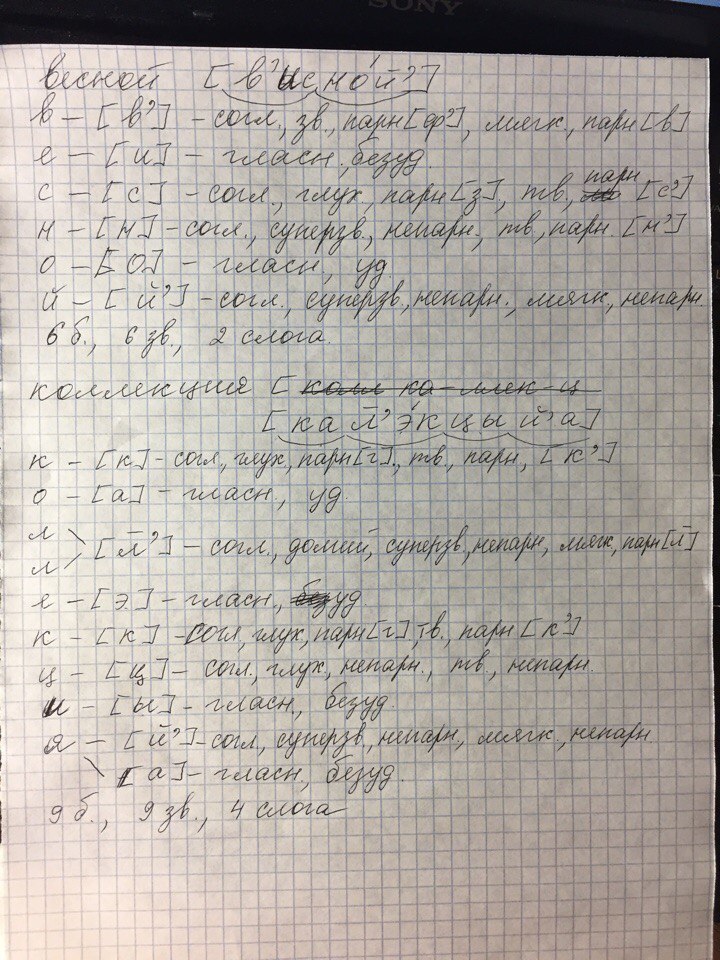 SONY
весной [в'исно́й']
в – [в'] – согл., зв., парн [ф'], мягк., парн [в]
е – [и] – гласн, безуд.
с – [с] – согл., глух, парн [з], тв, парн [с']
н – [н] – согл., суперзв., непарн., тв, парн. [н']
о – [о] – гласн, уд.
й – [й'] – согл., суперзв., непарн., мягк, непарн.
6 б., 6 зв., 2 слога.
коллекция [ колл ко-ллек-ц
[кал̄'э́кцый'а]
к – [к] – согл, глух, парн [г]., тв, парн, [к']
о – [а] – гласн, уд.
л
л [л̄'] – согл., долгий, суперзв, непарн, мягк, парн [л̄]
е – [э] – гласн, безуд.
к – [к] – согл, глух, парн [г], тв., парн [к']
ц – [ц] – согл., глух, непарн., тв, непарн.
и – [ы] – гласн, безуд.
я – [й'] – согл, суперзв, непарн, мягк, непарн
[а] – гласн, безуд.
9 б., 9 зв., 4 слога